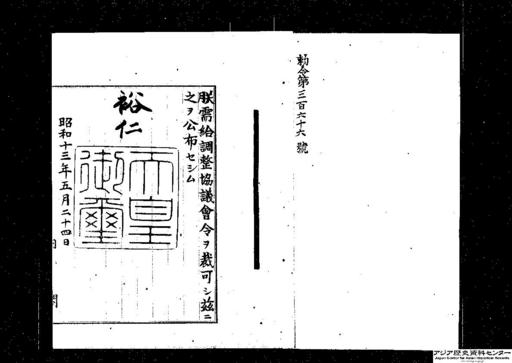 勅令第三百六十六號
朕需給調整協議會令ヲ裁可シ茲ニ
之ヲ公布セシム
裕仁
天皇
御璽
昭和十三年五月二十四日
アジア歴史資料センター
Japan Center for Asian Historical Records